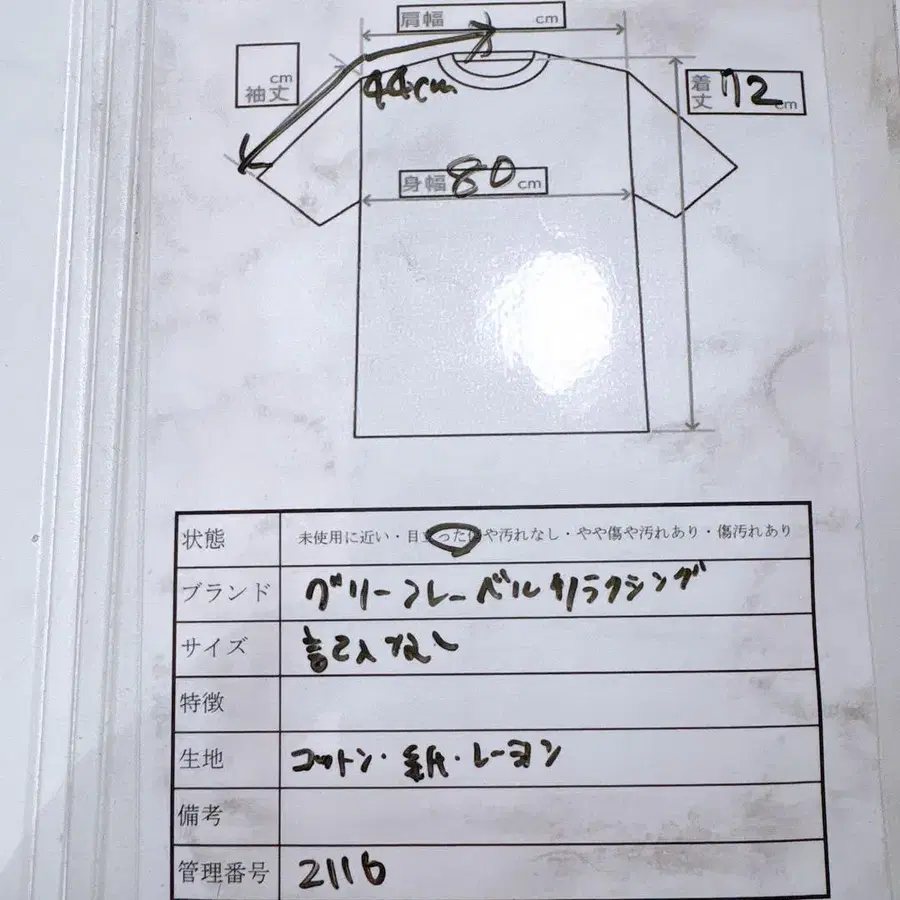 肩幅 cm
cm
袖丈
44cm
着丈 72 cm
身幅 80 cm
状態 未使用に近い・目立った傷や汚れなし・やや傷や汚れあり・傷汚れあり
ブランド グリーンレーベルリラクシング
サイズ 記入なし
特徴
生地 コットン・紙・レーヨン
備考
管理番号 2116